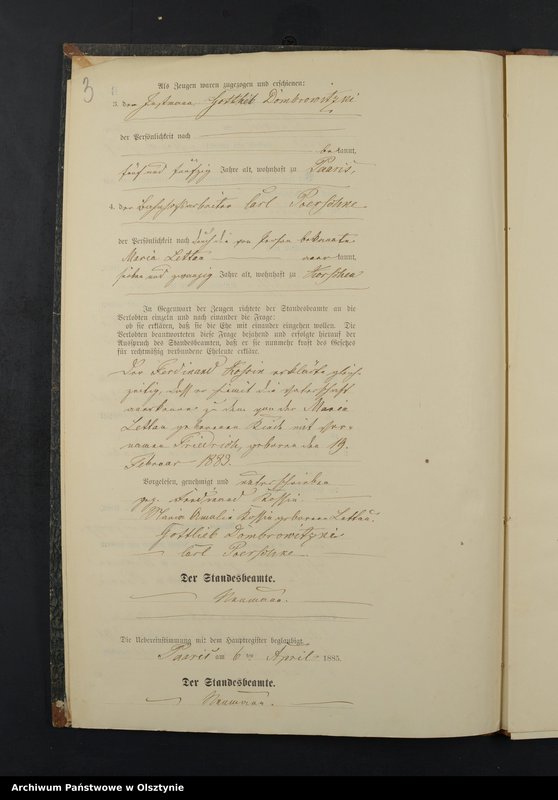 3
Als Zeugen waren zugezogen und erschienen:
3. der Gottlieb Dombrowitzki
der Persönlichkeit nach
be kannt,
fünf und fünfzig Jahre alt, wohnhaft zu Paaris,
4. der Bahnhofsarbeiter Carl Poerschke
der Persönlichkeit nach durch die von Person bekannte
Maria Lettau aner kannt,
sieben und zwanzig Jahre alt, wohnhaft zu Korschen
In Gegenwart der Zeugen richtete der Standesbeamte an die
Verlobten einzeln und nach einander die Frage:
ob sie erklären, daß sie die Ehe mit einander eingehen wollen. Die
Verlobten beantworteten diese Frage bejahend und erfolgte hierauf der
Ausspruch des Standesbeamten, daß er sie nunmehr kraft des Gesetzes
für rechtmäßig verbundene Eheleute erkläre.
Der Ferdinand Kossin erklärte gleich-
zeitig, daß er hiemit die Vaterschaft
anerkenne zu dem von der Maria
Lettau geborenen Kinde mit Vor-
namen Friedrich, geboren den 19.
Februar 1883.
Vorgelesen, genehmigt und unterschrieben
gez. Ferdinand Kossin
Maria Amalie Kossin geborene Lettau.
Gottlieb Dombrowitzki
Carl Poerschke
Der Standesbeamte.
Neumann.
Die Uebereinstimmung mit dem Hauptregister beglaubigt.
Paaris am 6 ten April 1885.
Der Standesbeamte.
Neumann.
Archiwum Państwowe w Olsztynie